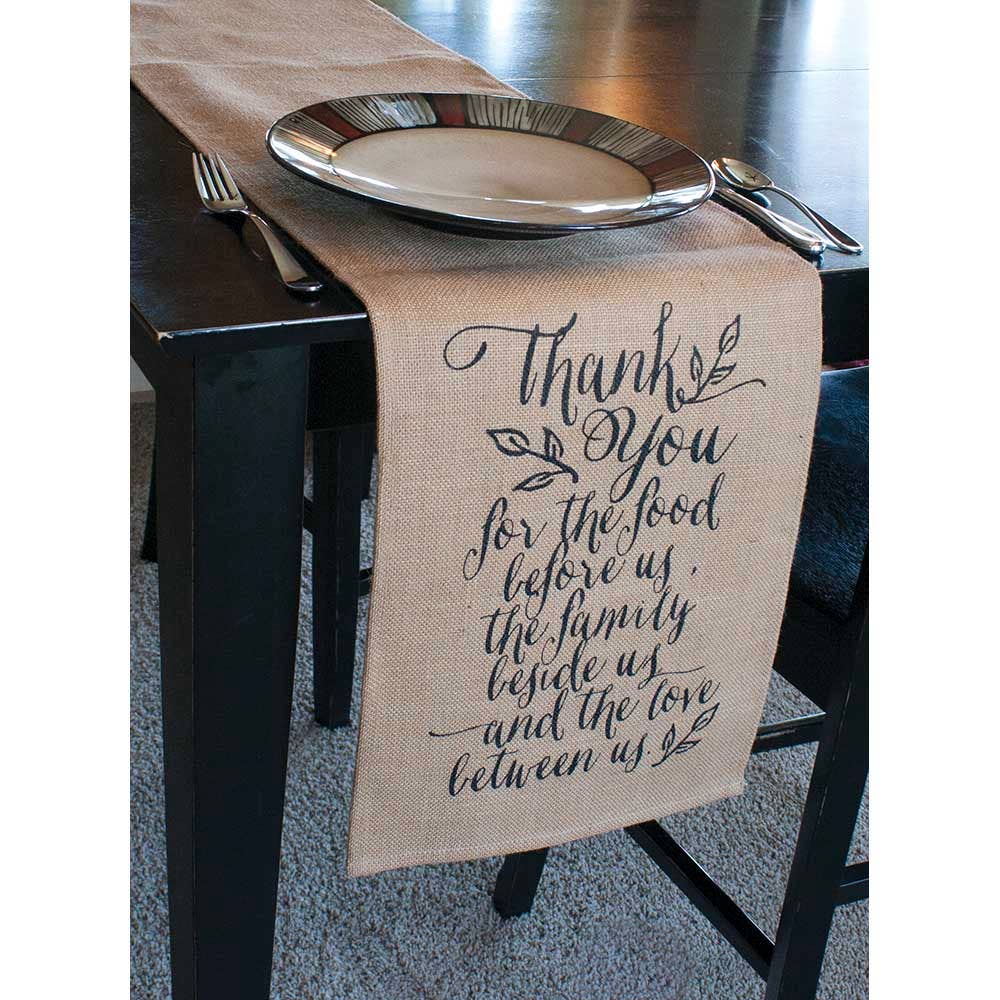 Thank
You
for the food
before us,
the family
beside us
and the love
between us.